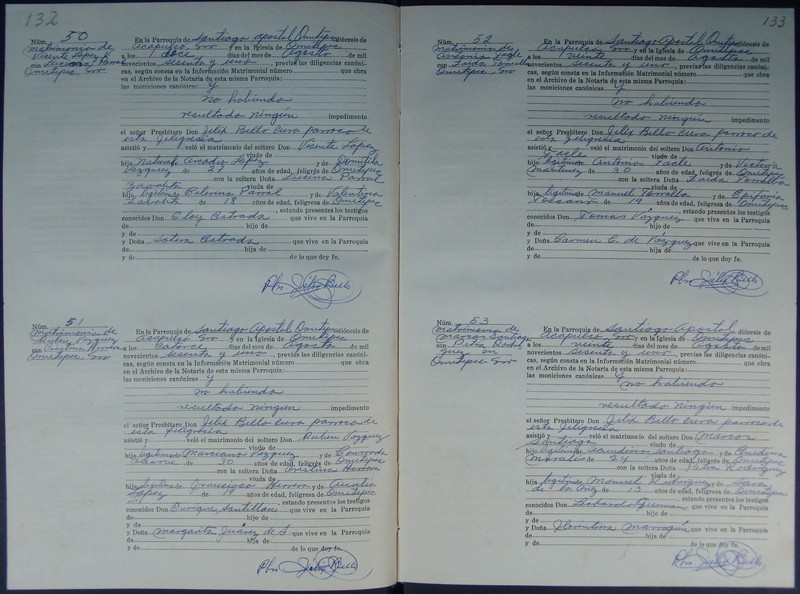 132
Núm. 50
Matrimonio de
Vicente Lopez
con Lucina Parral
Ometepec Gro
En la Parroquia de Santiago Apostol Ometepec diócesis de
Acapulco Gro y en la Iglesia de Ometepec
a los doce días del mes de Agosto de mil
novecientos sesenta y uno, previas las diligencias canóni-
cas, según consta en la Información Matrimonial número que obra
en el Archivo de la Notaría de esta misma Parroquia:
las moniciones canónicas y
no habiendo
resultado ningún impedimento
el señor Presbítero Don Félix Bello Cura parroco de
esta feligresia
asistió y veló el matrimonio del soltero Don Vicente Lopez
viudo de
hijo Natural Arcadio Lopez y de Domitila
Vazquez de 27 años de edad, feligrés de Ometepec
con la soltera Doña Lucina Parral
Zavaleta viuda de
hija legitima Ceferino Parral y de Valentina
Zavaleta de 18 años de edad, feligresa de Ometepec
, estando presentes los testigos
conocidos Don Eloy Estrada que vive en la Parroquia
de hijo de
y de
y Doña Sotera Estrada que vive en la Parroquia
de hija de
y de de lo que doy fe.
Pbro Félix Bello
Núm. 51
Matrimonio de
Ruben Vazquez
con Herrera
Ometepec Gro
En la Parroquia de Santiago Apostol Ometepec diócesis de
Acapulco Gro y en la Iglesia de Ometepec
a los Catorce días del mes de Agosto de mil
novecientos sesenta y uno, previas las diligencias canóni-
cas, según consta en la Información Matrimonial número que obra
en el Archivo de la Notaría de esta misma Parroquia:
las moniciones canónicas y
no habiendo
resultado ningún impedimento
el señor Presbítero Don Félix Bello Cura parroco de
esta feligresia
asistió y veló el matrimonio del soltero Don Ruben Vazquez
viudo de
hijo legitimo Marciano Vazquez y de
de 30 años de edad, feligrés de Ometepec
con la soltera Doña Herrera
viuda de
hija legitima Francisco Herrera y de
Lopez de 19 años de edad, feligresa de Ometepec
, estando presentes los testigos
conocidos Don Enrique Santillan que vive en la Parroquia
de hijo de
y de
y Doña Margarita Juárez de S. que vive en la Parroquia
de hija de
y de de lo que doy fe.
Pbro Félix Bello
133
Núm. 52
Matrimonio de
Antonio Tacle
con Zaida Torralba
Ometepec Gro
En la Parroquia de Santiago Apostol Ometepec diócesis de
Acapulco Gro y en la Iglesia de Ometepec
a los Veinte días del mes de Agosto de mil
novecientos sesenta y uno, previas las diligencias canóni-
cas, según consta en la Información Matrimonial número que obra
en el Archivo de la Notaría de esta misma Parroquia:
las moniciones canónicas y
no habiendo
resultado ningún impedimento
el señor Presbítero Don Félix Bello Cura parroco de
esta feligresia
asistió y veló el matrimonio del soltero Don Antonio
Tacle viudo de
hijo legitimo Antonio Tacle y de Victoria
Martinez de 30 años de edad, feligrés de Ometepec
con la soltera Doña Zaida Torralba
viuda de
hija legitima Manuel Torralba y de Epifania
Toscano de 19 años de edad, feligresa de Ometepec
, estando presentes los testigos
conocidos Don Tomás Vazquez que vive en la Parroquia
de hijo de
y de
y Doña Carmen C. de Vázquez que vive en la Parroquia
de hija de
y de de lo que doy fe.
Pbro Félix Bello
Núm. 53
Matrimonio de
Marcos Santiago
con Petra Rodri
guez en
Ometepec Gro
En la Parroquia de Santiago Apostol diócesis de
Acapulco Gro y en la Iglesia de Ometepec
a los Veinte días del mes de Agosto de mil
novecientos sesenta y uno, previas las diligencias canóni-
cas, según consta en la Información Matrimonial número que obra
en el Archivo de la Notaría de esta misma Parroquia:
las moniciones canónicas y
no habiendo
resultado ningún impedimento
el señor Presbítero Don Félix Bello Cura parroco de
esta feligresia
asistió y veló el matrimonio del soltero Don Marcos
Santiago viudo de
hijo legitimo Santiago y de
Morales de 24 años de edad, feligrés de Ometepec
con la soltera Doña Petra Rodriguez
viuda de
hija legitima Manuel Rodriguez y de Sara
de la Cruz de 15 años de edad, feligresa de Ometepec
, estando presentes los testigos
conocidos Don Guzman que vive en la Parroquia
de hijo de
y de
y Doña Florentina Marroquin que vive en la Parroquia
de hija de
y de de lo que doy fe.
Pbro Félix Bello